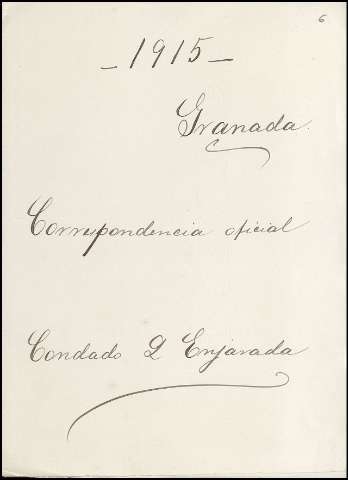 6
- 1915 -
Granada.
Correspondencia oficial
Condado D Enjarada